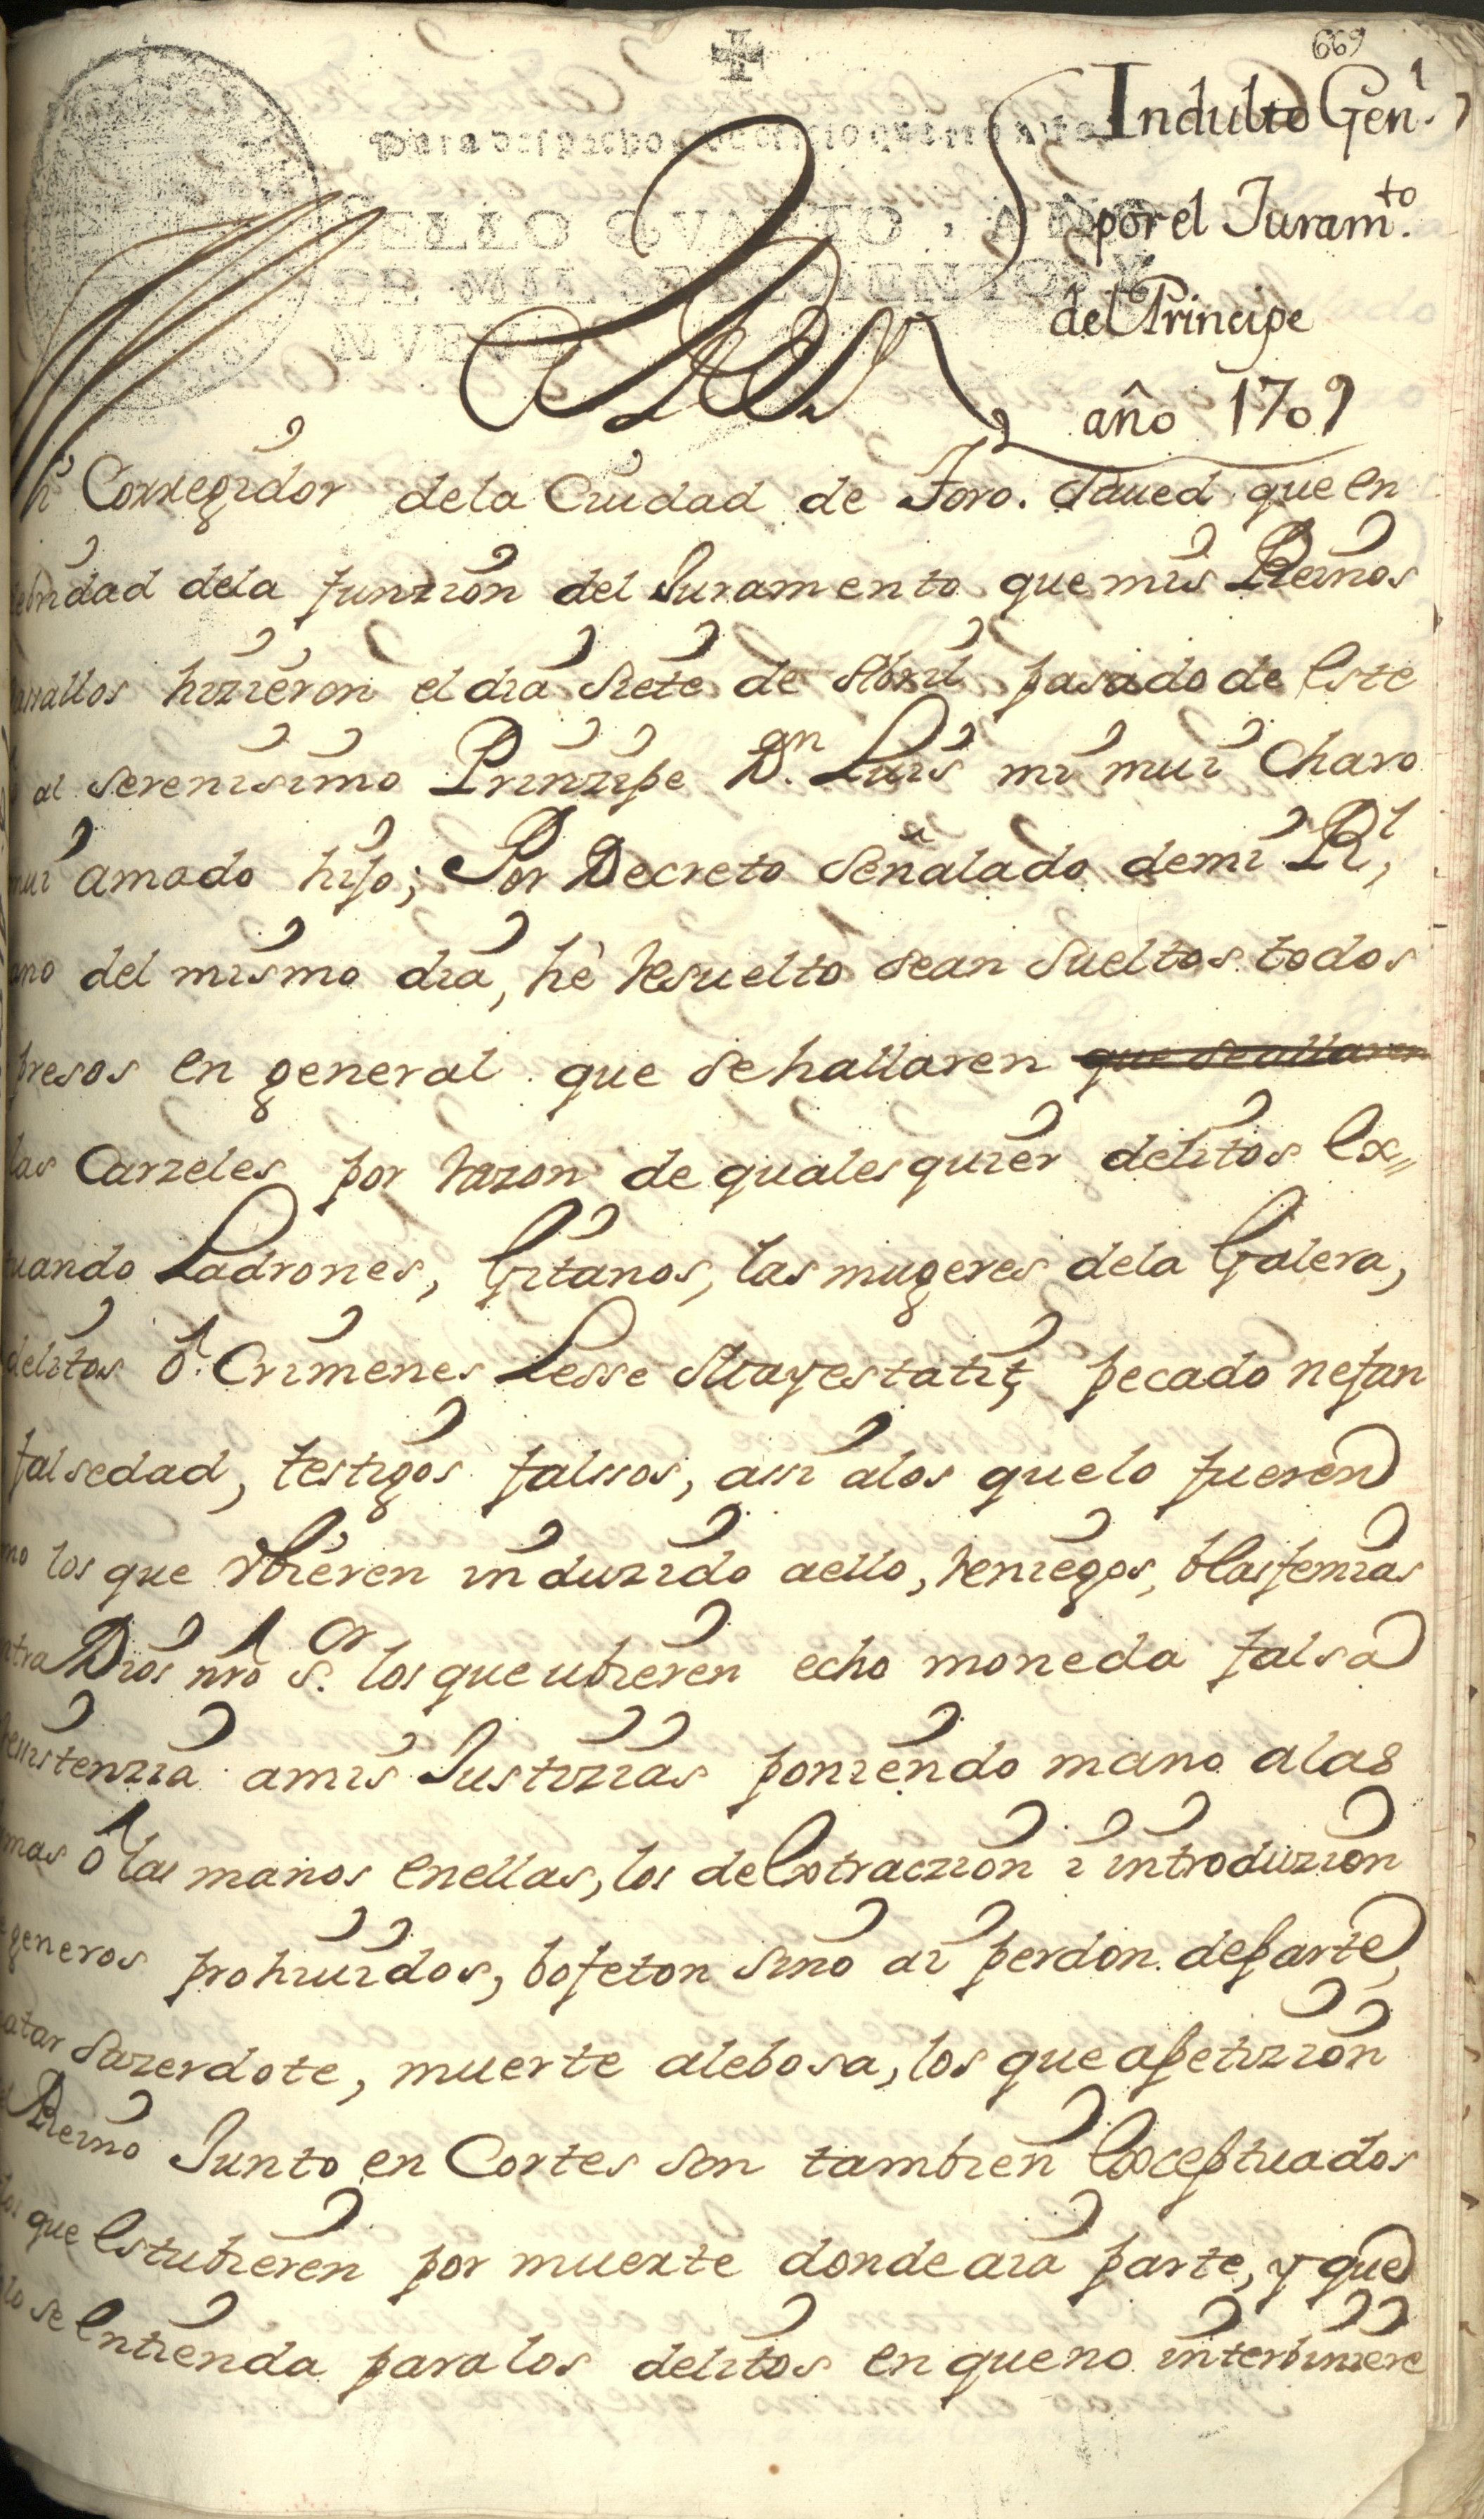 669
Indulto Gen.l
por el Juram.to
del Principe
año 1709
Para despachos de oficio quatro mrs
SELLO QVARTO, AÑO
DE MIL SETECIENTOS Y
NVEVE
Rey
Corregidor dela Ciudad de Toro. Saued que en
dela funzion del Juramento que mis Reinos
hizieron el dia Siete de Abril pasado de este
al serenisimo Prinzipe D.on Luis mi mui Charo
mui amado hijo; Por Decreto Señalado demi R.l
del mismo dia, hè resuelto sean sueltos todos
presos en general que sehallaren que se allaren
las Carzeles por razon de qualesquier delitos ex,,
Ladrones, Gitanos, las mugeres dela Galera,
delitos ô Crimenes Lesse Mayestatis, pecado nefan
falsedad, testigos falssos, assi alos quelo fueren
los que vbieren induzido aello, reniegos, blasfemias
Dios nro s.or los que ubieren echo moneda falsa
Resistenzia amis Justizias poniendo mano alas
ô las manos enellas, los de extraczion i introduzion
generos prohiuidos, bofeton sino ai perdon departe,
Sazerdote, muerte alebosa, los que apetizion
Reino Junto en Cortes son tambien exceptuados
que estubieren por muerte donde aia parte, y que
se entienda paralos delitos en queno interbiniere